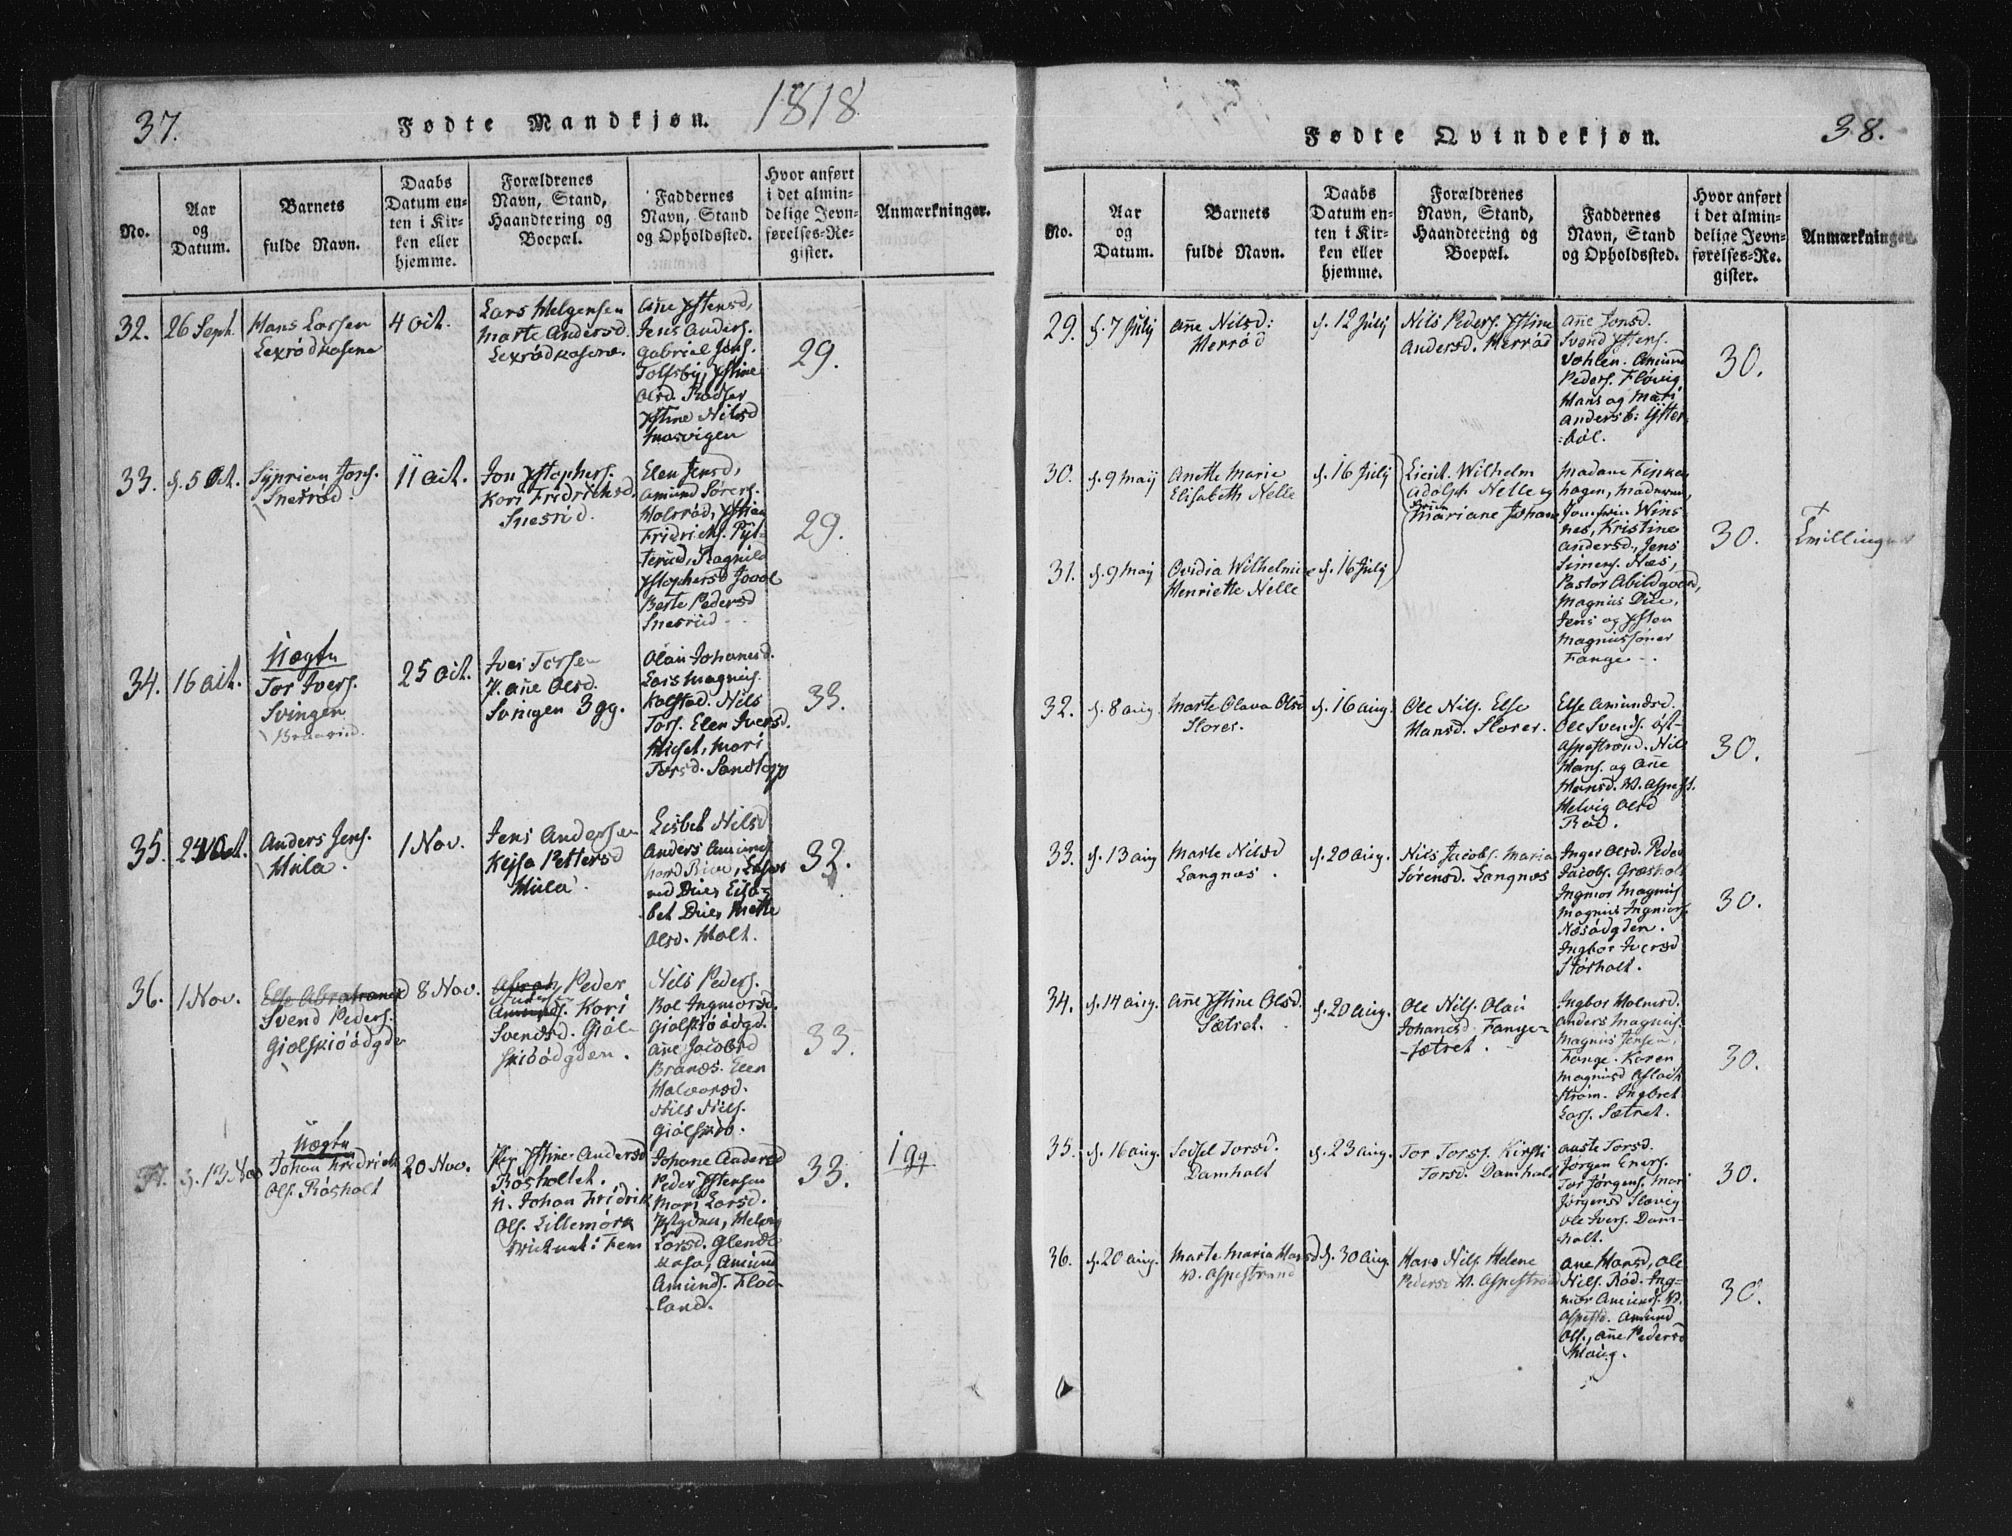 37.
Fødte Mandkjøn.
1818
No.
Aar
og
Datum.
Barnets
fulde Navn.
Daabs
Datum en-
ten i Kir-
ken eller
hjemme.
Forældrenes
Navn, Stand,
Haandtering og
Boepæl.
Faddernes
Navn, Stand
og Opholdssted.
Hvor anført
i det almin-
delige Jevn-
førelses-Re-
gister.
Anmærkninger.
32.
26 Sept.
Hans Larsen
Lexrødkasene
4 Oct.
Lars Helgensen
Marte Andersd.
Lexrødkasene.
Ane
Jens Anders.
Gabriel Jens.
Olsd. Rødser
Nilsd
29.
33.
f. 5 Oct.
Syprian Jons.
Snesrød.
11 Oct.
Jon Xstophers.
Kari Fridrichsd.
Snesrød.
Elen Jensd,
Amund Sørens.
Holsrød, Xstian
Fridrichs. Pyt-
terud, Ragnild
Xstophersd
Berte Pedersd
Snesrud
29.
34.
16 Oct.
Uægte
Tor Ivers.
Svingen
25 Oct.
Iver Torsen
P. Ane Olsd.
Svingen 3 gg.
Olau Johanesd.
Lars Magnus.
Kolstad. Nils
Tors. Elen Iversd.
Mari
Torsd.
33.
35.
24 Oct.
Anders Jens.
Hula.
1 Nov.
Jens Andersen
Kejsa Pettersd
Hula.
Lisbet Nilsd
Anders Amund
Due, Elisa-
bet Due, Mette
Olsd. Holt.
32.
36.
1 Nov.
Else Abrahamsd
Svend Peders.
Giølskiöödgden
8 Nov.
Peder
Kari
Svendsd. Giøl-
skiöödgden.
Nils Peders.
Boe Ingmorsd.
Giølskiöödgd.
Ane Jacobsd
Elen
Halvorsd.
Nils Nils.
Giølskiö.
33.
f. 13 Nov
Uægte
Johan Fridrich
Ols. Røsholt
20 Nov.
Pig. Xstine Andersd
Røsholtet.
U. Johan Fridrik
Ols. Lillemørk
Johane Andersd
Peder Xstensen
Mari Larsd.
Larsd. Glende
Kasa, Amund
Amunds. Flod-
land.
33.
1 gg
Fødte Qvindekjøn.
38.
No.
Aar
og
Datum.
Barnets
fulde Navn.
Daabs
Datum en-
ten i Kir-
ken eller
hjemme.
Forældrenes
Navn, Stand,
Haandtering og
Boepæl.
Faddernes
Navn, Stand
og Opholdssted.
Hvor anført
i det almin-
delige Jevn-
førelses-Re-
gister.
Anmærkninger.
29.
f. 7 July
Ane Nilsd:
Herrød
f. 12 July
Nils Peders. Xstine
Andersd. Herrød
Ane Jonsd.
Svend Xstens.
Amund
Peders. Fløvig
Hans og Mari
Andersb: Yster
-bøl.
30.
30.
f. 9 Maij
Anette Marie
Elisabeth Nelle
f. 16 July
Lieut. Wilhelm
Adolph Nelle og
Mariane Johane
Madame Finken
hagen,
Jomfrue Wins
nes, Kristine
Andersd., Jens
Simens. Næs,
Pastor Abildgaard,
Magnus Due,
Jens og Xsten
Magnussøner
Fange
30.
31.
f. 9 Maij
Ovidia Wilhelmine
Henriette Nelle
f. 16 July
32.
f. 8 Aug.
Marte Olava Olsd
Storer.
f. 16 Aug.
Ole Nils. Else
Hansd. Storer.
Else Amundsd.
Ole Svends. Øst-
Aspestrand. Nils
Hans. og Ane
Hansd. W. Aspest.
Helvig Olsd
Rød.
30.
33.
f. 13 Aug
Marte Nilsd
Langnæs.
f. 20 Aug.
Nils Jacobs. Maria
Sørensd. Langnæs
Inger Olsd. Peder
Jacobs. Græsholt
Ingmor Magnus
Magnus Ingmors.
Næsödgden.
Ingbor Iversd
Størholt.
30.
34.
f. 14 Aug.
Ane Xstine Olsd.
Sætret.
f. 20 Aug.
Ole Nils. Olau
Johansd. Fange-
-sætret.
Ingbor Holmsd.
Anders Magnus.
Magnus Jensen,
Fange. Karen
Magnusd Aslach
strøm. Ingbret
Lars. Sætret.
30.
35.
f. 16 Aug.
Sidsel Torsd.
Damholt
f. 23 Aug.
Tor Torss. Kirsti
Torsd. Damholt
Aaste Torsd.
Jørgen Eners.
Tor Jørgens. Mari
Jørgensd Slævig
Ole Ivers. Dam-
holt.
30.
36.
f. 20 Aug.
Marte Maria Hansd
W. Aspestrand
f. 30 Aug.
Hans Nils. Helene
Pedersd W. Aspestrand
Ane Hansd, Ole
Nils. Rød. Ing-
mor Amunds. W.
Aspestd. Amund
Ols., Ane Pedersd
Haug.
30.